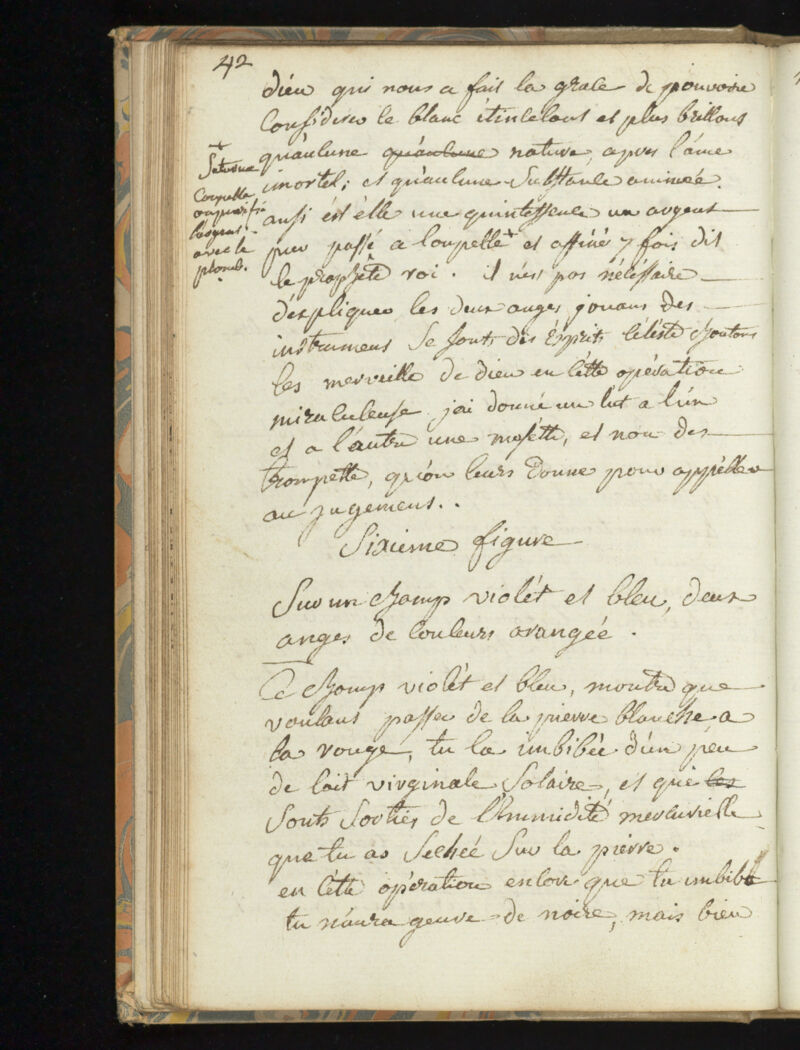 42
dieu qui nous a fait la grace de pouvoire
Considérer le blanc étincelant et plus brillans
qu'aulcune qu'aulcune nature, apres l'ame
imortel; et qu'aulcune Substance animée.
ausi ést élle une quintessence un argent
pur passé a Coupelle + et affiné 7 fois dit
le prophète roi. il n'est pas néléssaire
d'éxpliquer les deux anges jouans des
instrumens Se Sonts dis ésprits Céléste chantans
les merveille de dieu en Cétte opération
miraculeuse jai donné un lut a l'ún
et a l'autre une musétte, et non des
trompette, qu'on leurs donne pour appéller
au jugemens..
+
Saturne
Coupelle
ou purifi
l'argent.
avec le
plomb.
Sixieme figure
Sur un champ violét et bleu, deux
anges de Couleurs orangée.
Ce champ violét et bleu, montre que
voulans passer de la pierre blanche a
la rouge, tu la imbibée d'un péu
de lait virginale Solaire, et que les
Sonts Sortiés de l'hummidité mercurielle
que tu as Sechéé Sur la pierre.
en Cétte opération encore que tu imbibe
tu n'aura geure de noire, mais bien